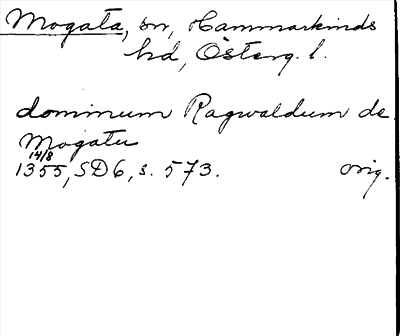 Mogata, sn, Hammarkinds
hd, Österg. l.
dominum Ragwaldum de
Mogatu
14/8
1355, SD6, s. 573. orig.